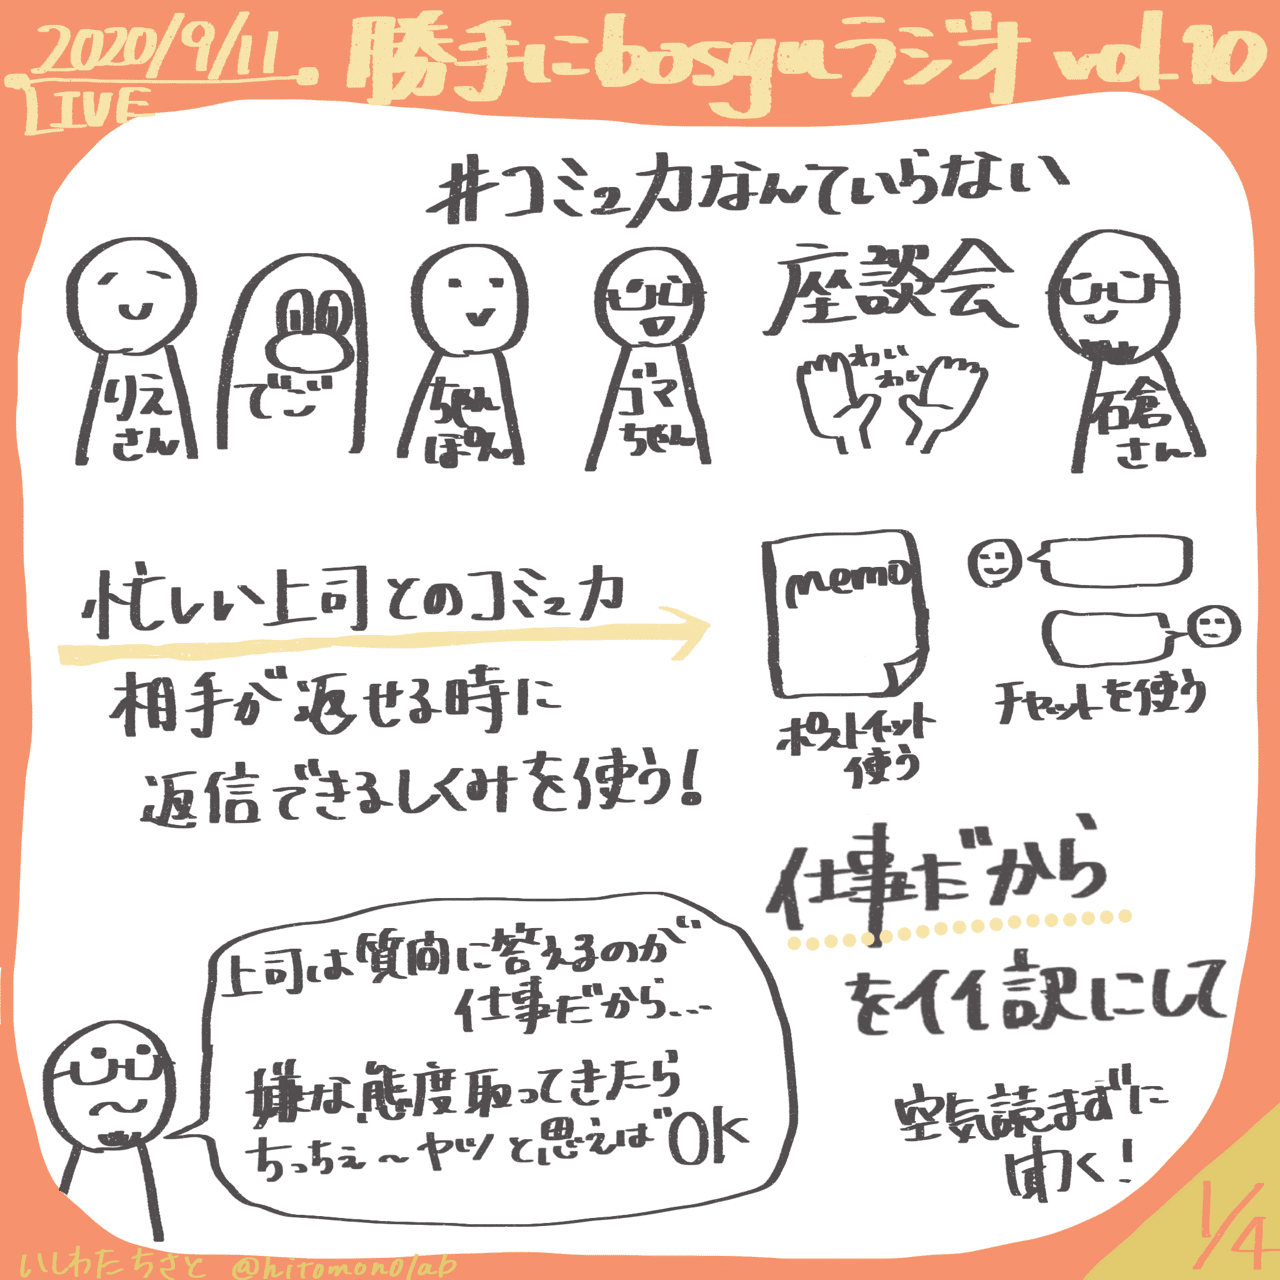 2020/9/11
LIVE
勝手にbosyuラジオ vol.10
#コミュ力なんていらない
座談会
わい
わい
りえ
さん
でご
ちゃん
ぽん
ゴマ
ちゃん
石倉
さん
忙しい上司とのコミュ力
相手が返せる時に
返信できるしくみを使う!
memo
ポストイット
使う
チャットを使う
仕事だから
をイイ訳にして
空気読まずに
聞く!
上司は質問に答えるのが
仕事だから...
嫌な態度取ってきたら
ちっちぇ〜ヤツと思えばOK
1/4
いしわたちさと @hitomonolab